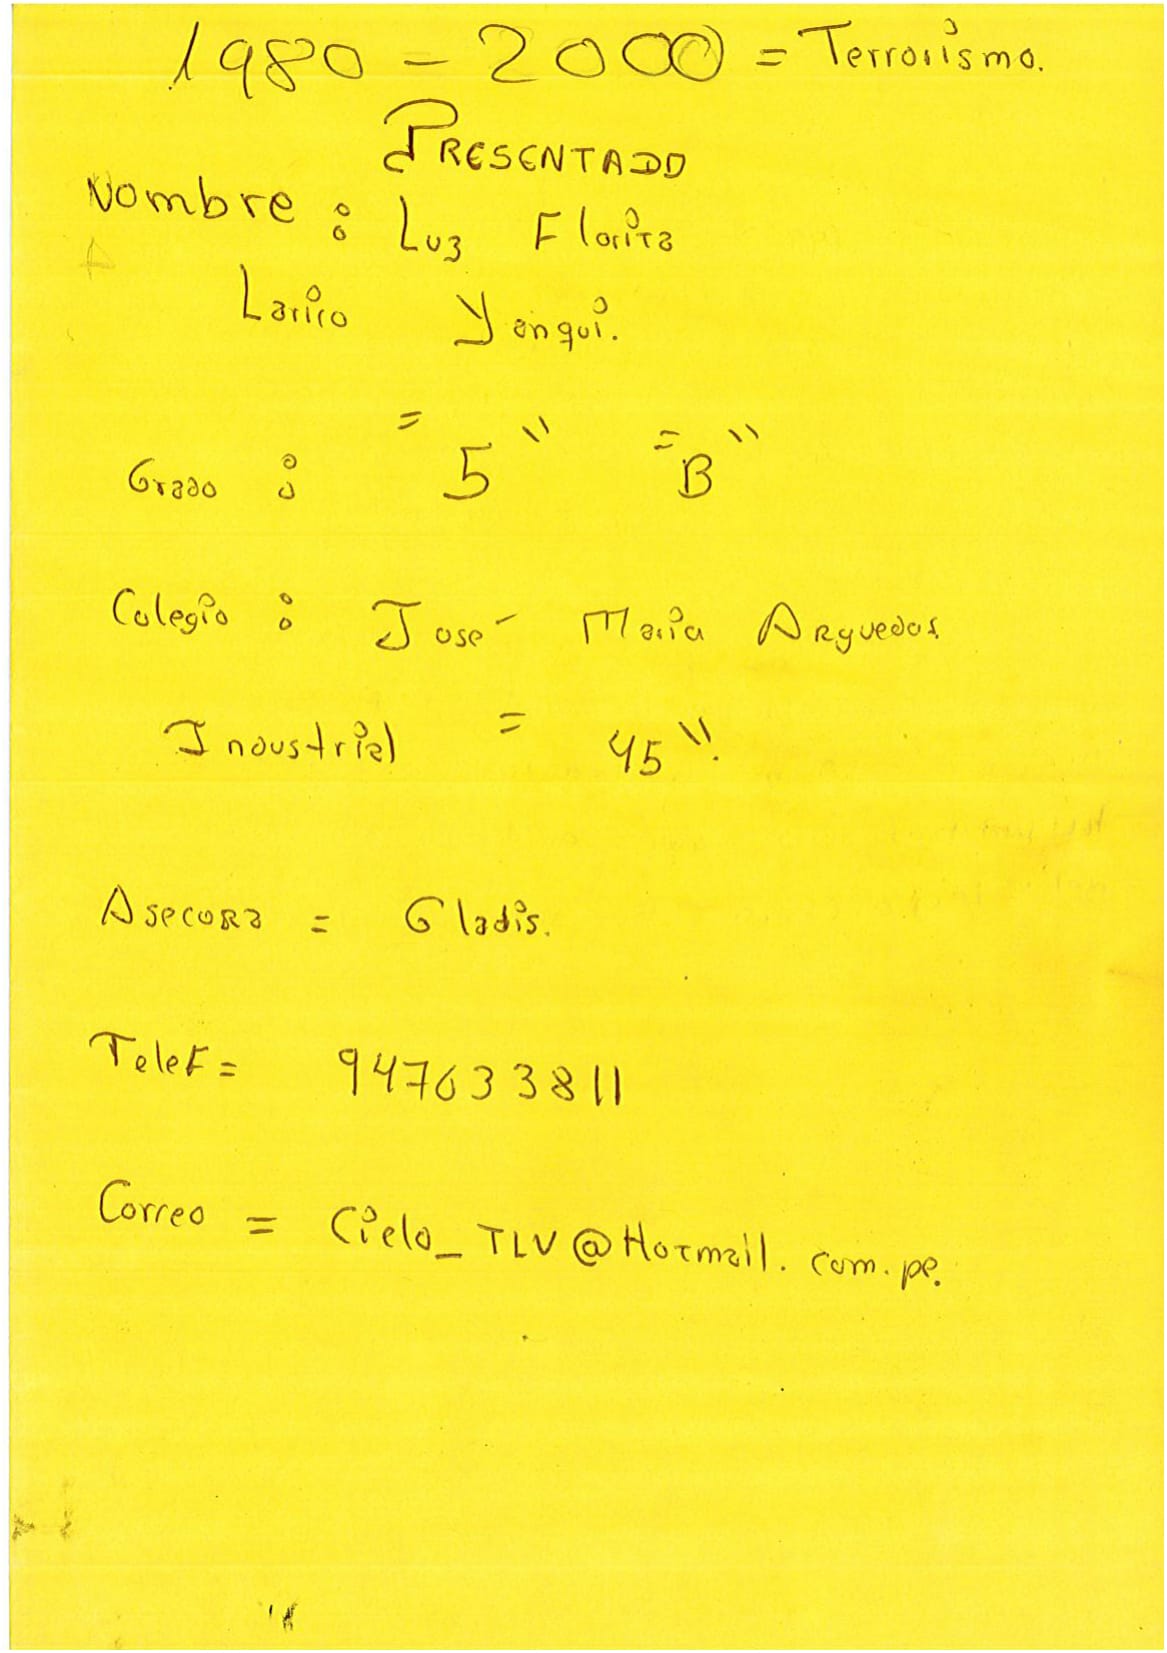 1980 - 2000 = Terrorismo.
PRESENTADO
Nombre : Luz Florita
Larico Yanqui.
Grado : "5" "B"
Colegio : José Maria Arguedas
Industrial "45".
Asecora = Gladis.
Telef = 947633811
Correo = Cielo_TLV@Hotmail.com.pe.